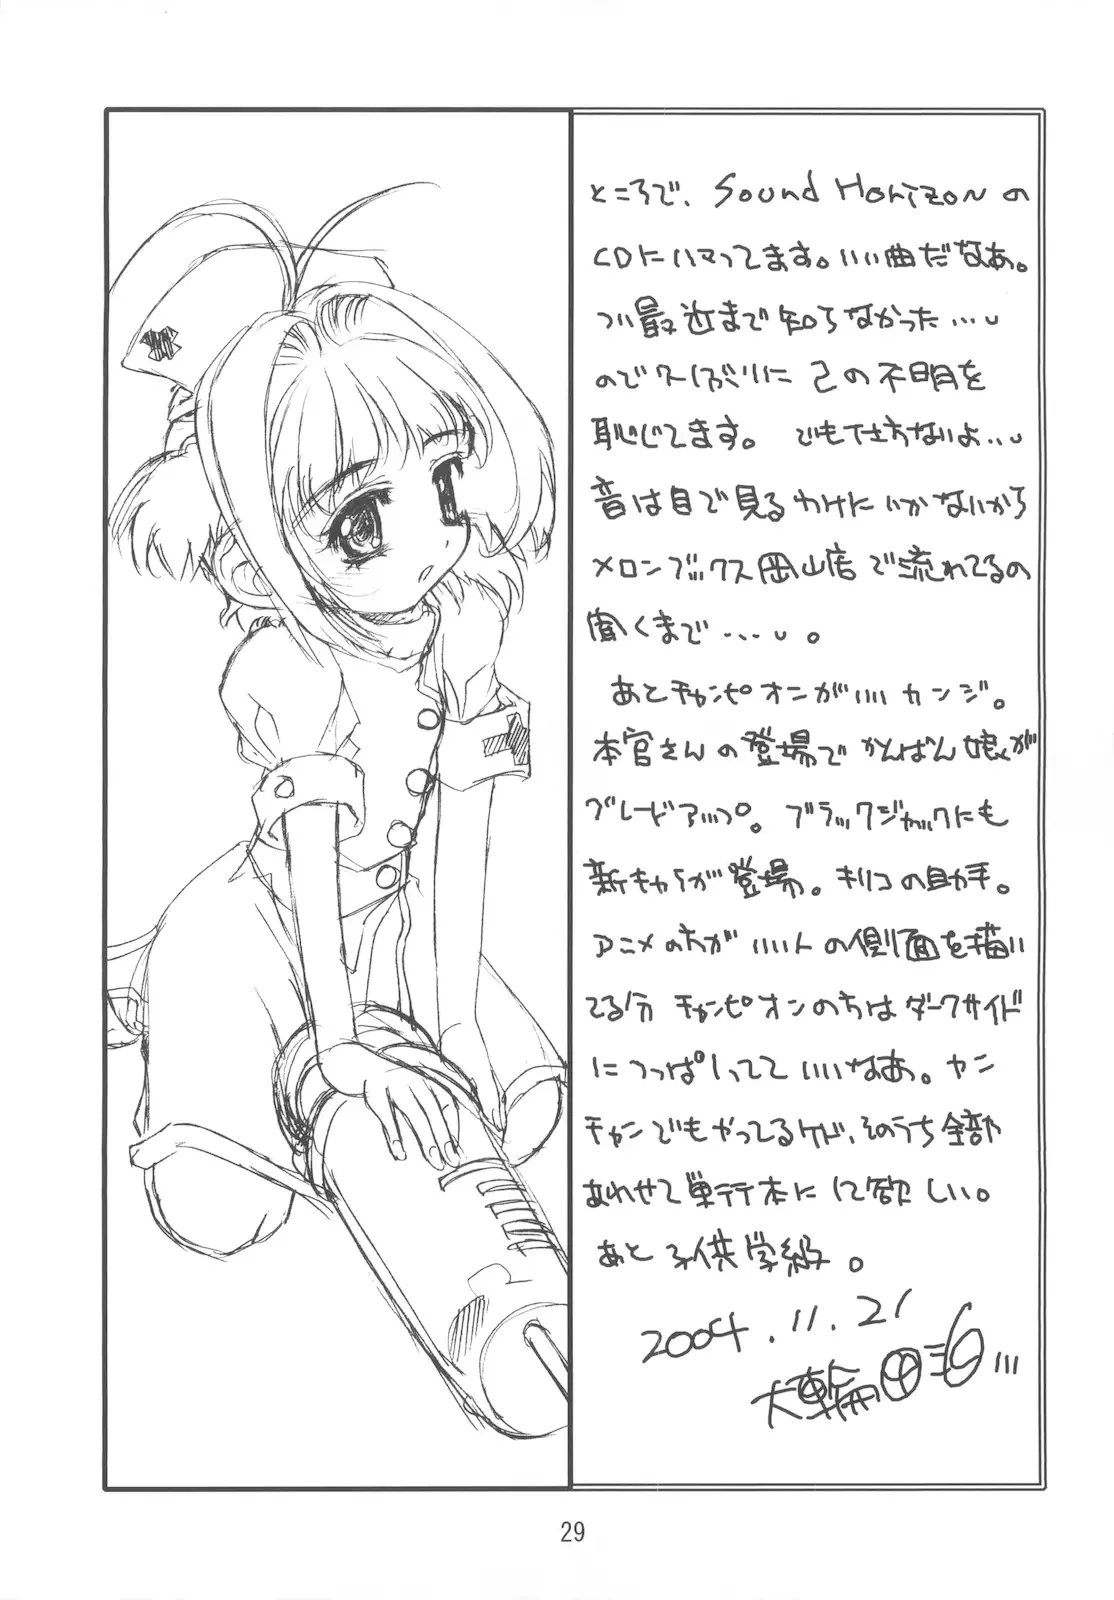 ところで、Sound Horizonの
CDにハマってます。いい曲だなあ。
つい最近まで知らなかった…。
のでひさしぶりに己の不明を
恥じてます。でも仕方ないよ…。
音は目で見るわけにいかないから
メロンブックス岡山店で流れてるの
聞くまで…。
あとチャンピオンがいいカンジ。
本官さんの登場でかんばん娘が
グレードアップ。ブラックジャックにも
新キャラが登場。キリコの助手。
アニメの方がいい人の側面を描い
てる分チャンピオンの方はダークサイド
につっぱしってていいなあ。ヤン
チャンでもやってるケド、そのうち全部
あわせて単行本にして欲しい。
あと子供学級。
2004.11.21
大輪
29